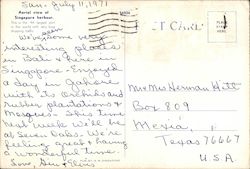 Sun. July 11, 1971
Aerial view of
Singapore harbour.
We've seen very
interesting places
in Bali & here in
Singapore. Enjoyed
a day in
with its Orchids and
rubber plantations &
Mosques - This time
next week we'll be
at Seven Oaks. We're
feeling great & having
a wonderful time.
Love,
T CARD
Mr. Mrs. Herman Hitt
Box 809
Mexia,
Texas 76667
U.S.A.